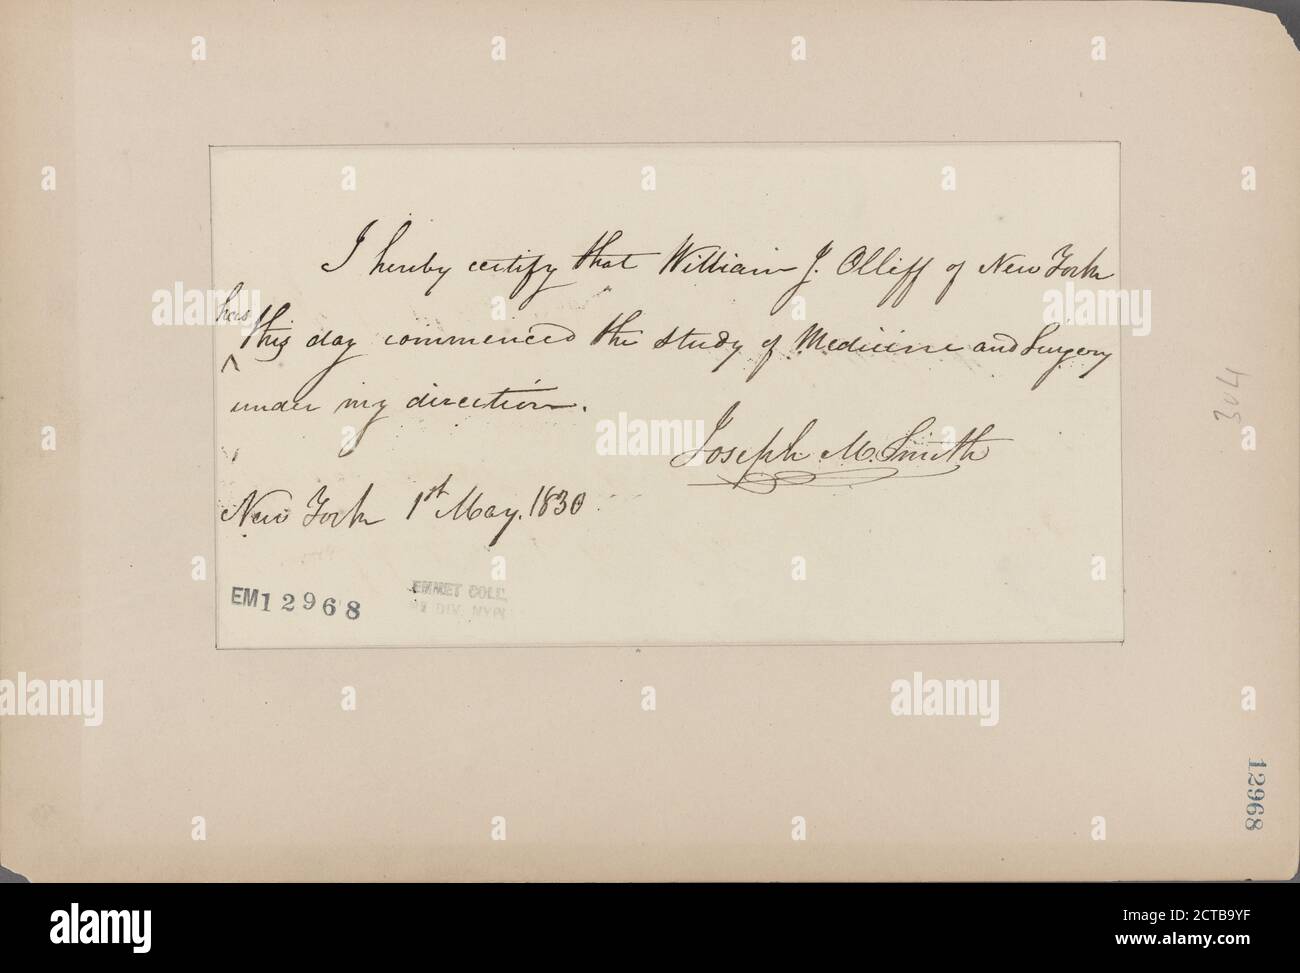 I hereby certify that William J. Olliff of New York
has
^ this day commenced the study of Medicine and Surgery
under my direction.
Joseph M. Smith
New York 1st May. 1830
EM12968
EMMET COLL.
DIV. NYPL
304
12968
alamy
Image ID: 2CTB9YF
www.alamy.com